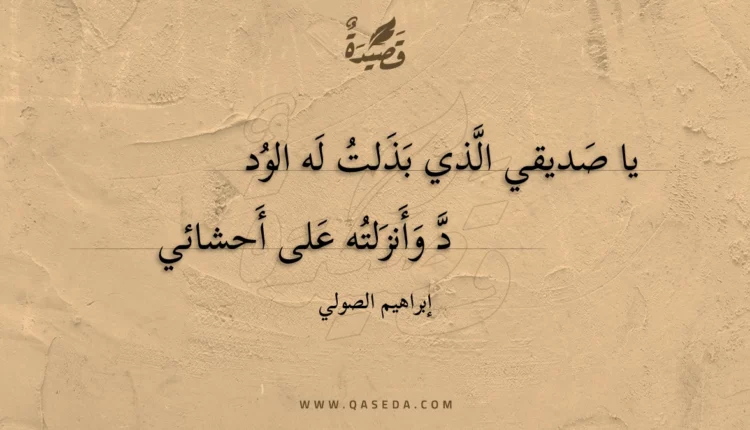 قَصِيْدَةٌ
يا صَديقي الَّذي بَذَلتُ لَه الوُد
دَّ وَأَنزَلتُه عَلى أَحشائي
إبراهيم الصولي
WWW.QASEDA.COM